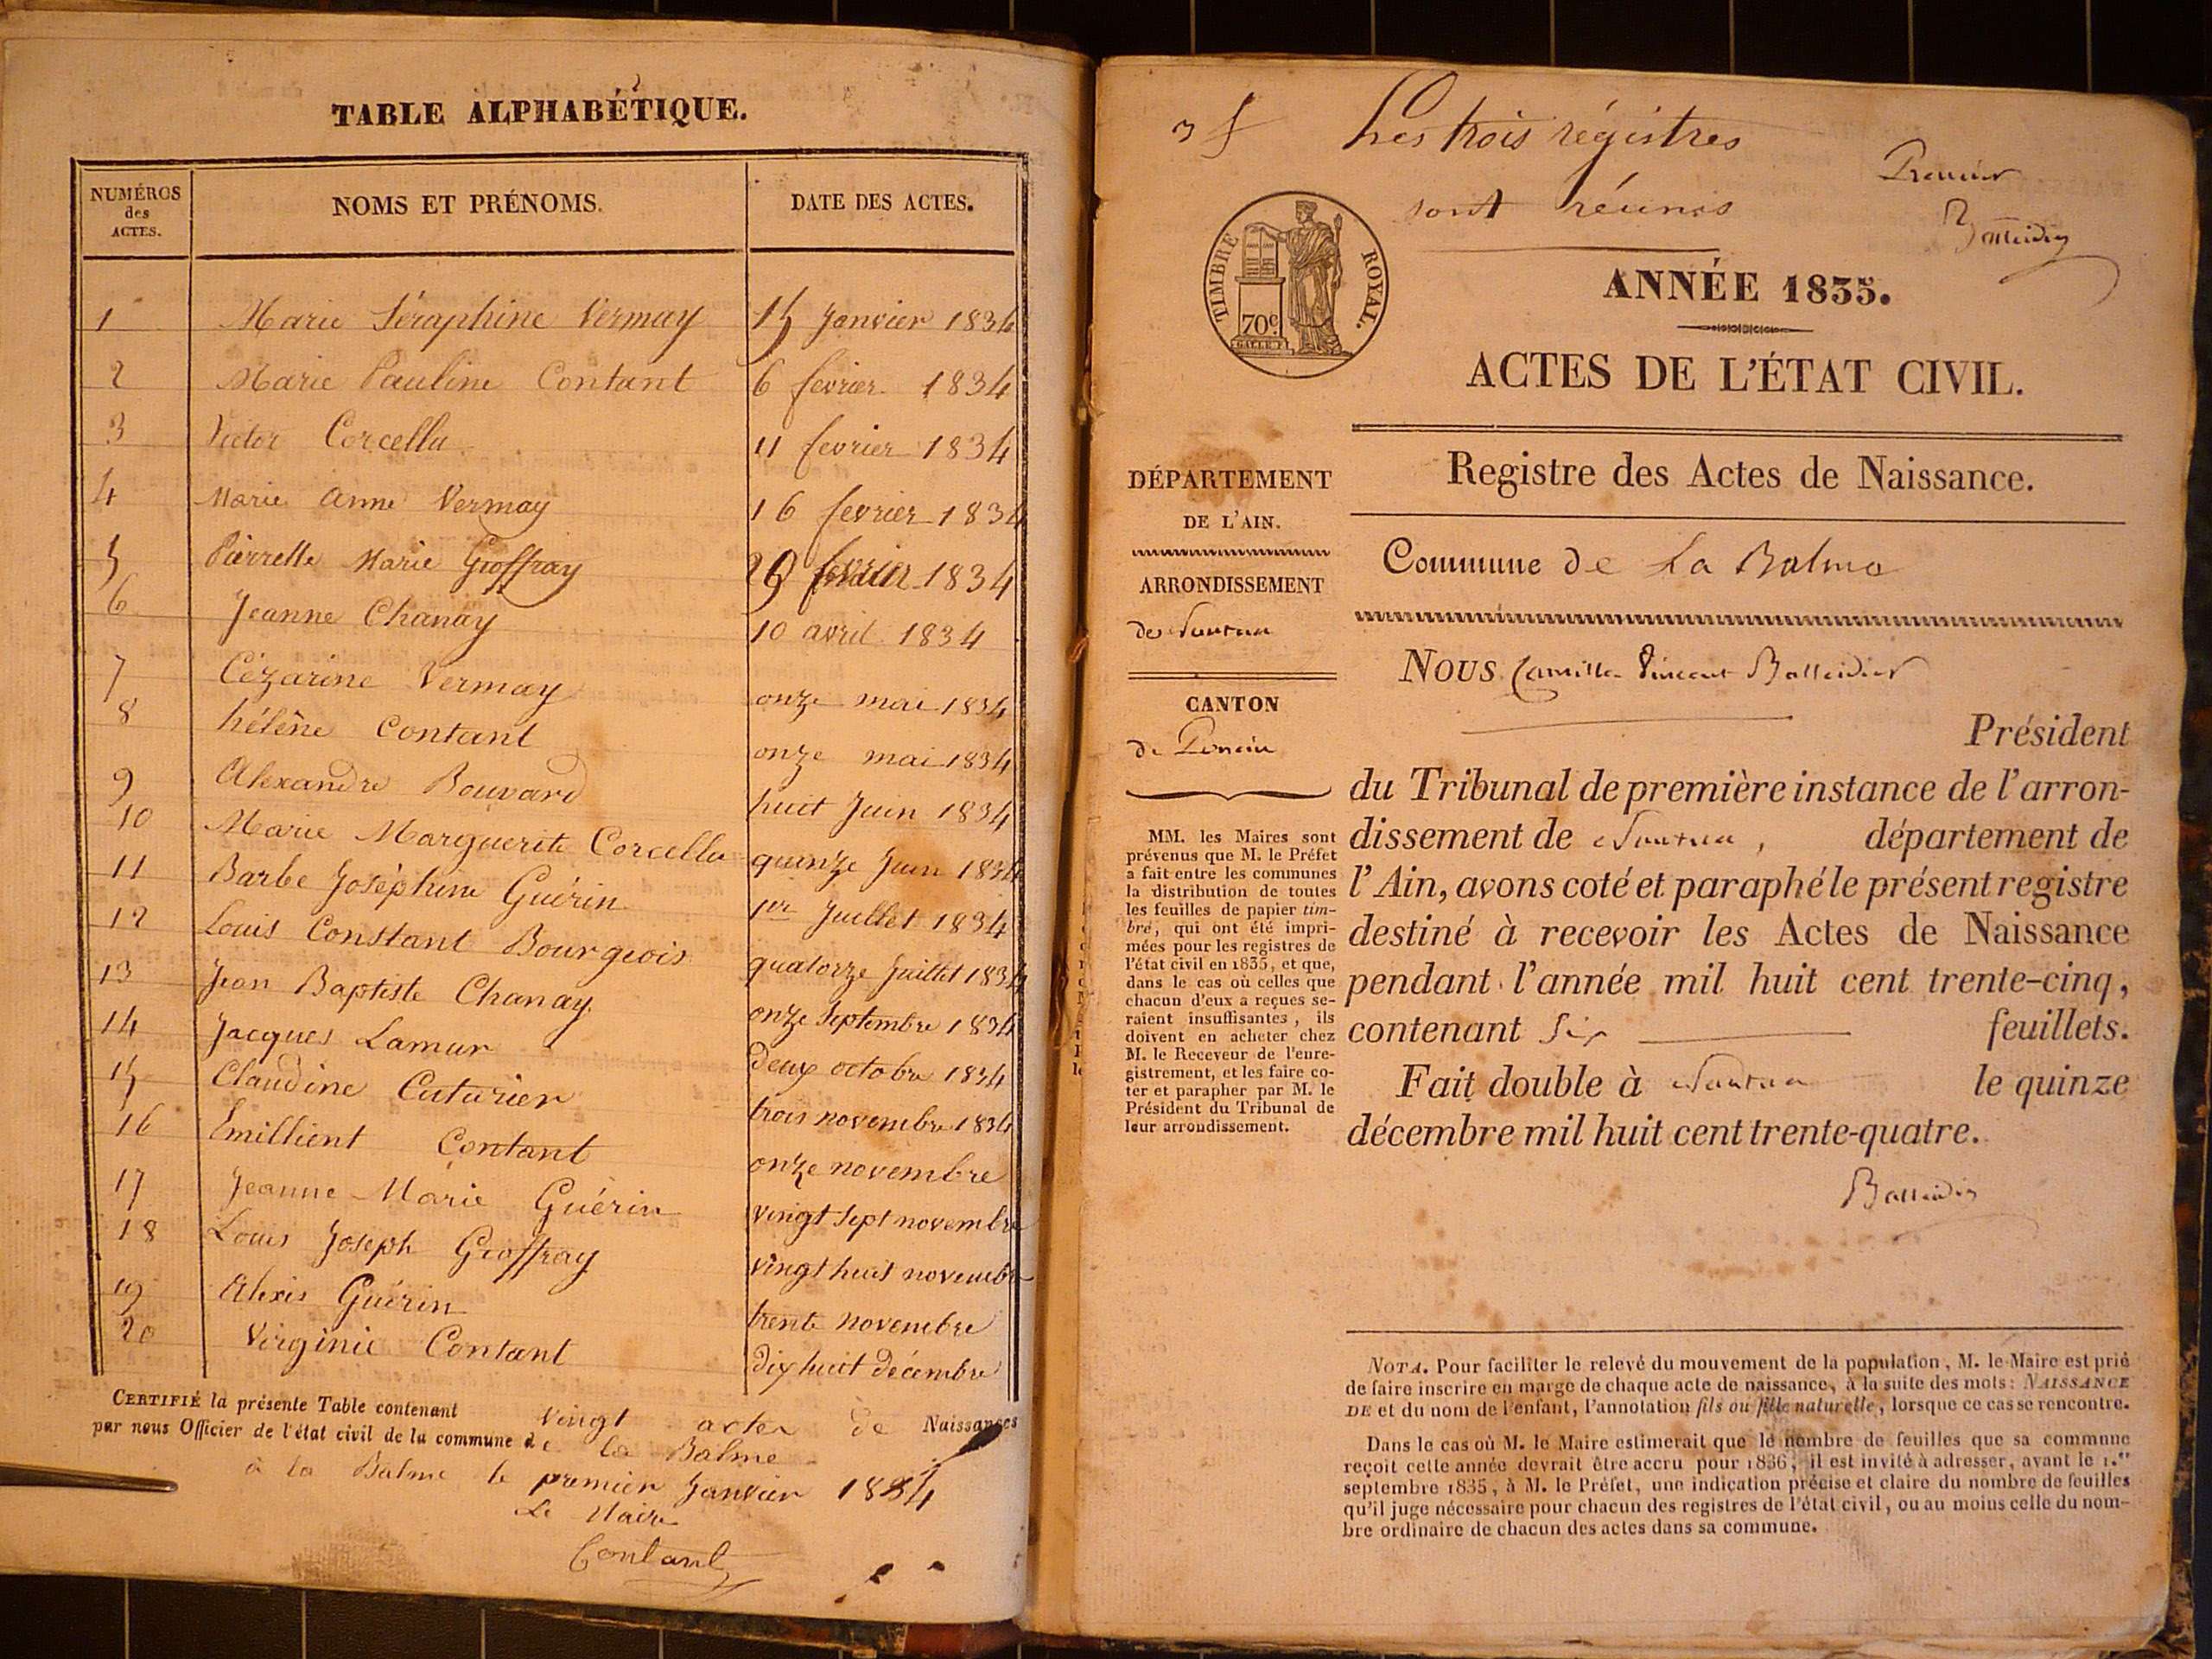 TABLE ALPHABÉTIQUE.
NUMÉROS des ACTES. NOMS ET PRÉNOMS. DATE DES ACTES.
1 Marie Séraphine Vermay 15 Janvier 1834
2 Marie Pauline Contant 6 fevrier 1834
3 Victor Corcella 11 fevrier 1834
4 Marie Anne Vermay 16 fevrier 1834
5 Pierrette Marie Groffray 29 1834
6 Jeanne Chanay 10 avril 1834
7 Cézarine Vermay onze mai 1834
8 hélène Contant onze mai 1834
9 Alexandre Bouvard huit Juin 1834
10 Marie Marguerite Corcella quinze Juin 1834
11 Barbe Joséphine Guérin 1er Juillet 1834
12 Louis Constant Bourgeois quatorze Juillet 1834
13 Jean Baptiste Chanay onze Septembre 1834
14 Jacques Lamur deux octobre 1834
15 Claudine Caturier trois novembre 1834
16 Emillient Contant onze novembre
17 Jeanne Marie Guérin vingt Sept novembre
18 Louis Joseph Groffray vingt huit novembre
19 Alexis Guérin trente novembre
20 Virginie Contant dix huit décembre
CERTIFIÉ la présente Table contenant vingt actes de Naissances
par nous Officier de l'état civil de la commune de la Balme
à la Balme le premier Janvier 1834
Le Maire
Contant
3 f Les trois régistres
sont réunis
Premier
Balleidier
TIMBRE ROYAL.
70c.
ANNÉE 1835.
ACTES DE L'ÉTAT CIVIL.
Registre des Actes de Naissance.
Commune de La Balme
DÉPARTEMENT
DE L'AIN.
ARRONDISSEMENT
de Nantua
CANTON
de Poncin
MM. les Maires sont
prévenus que M. le Préfet
a fait entre les communes
la distribution de toutes
les feuilles de papier tim-
bré, qui ont été impri-
mées pour les registres de
l'état civil en 1835, et que,
dans le cas où celles que
chacun d'eux a reçues se-
raient insuffisantes, ils
doivent en acheter chez
M. le Receveur de l'enre-
gistrement, et les faire co-
ter et parapher par M. le
Président du Tribunal de
leur arrondissement.
NOUS Camille Vincent Balleidier
Président
du Tribunal de première instance de l'arron-
dissement de Nantua, département de
l'Ain, avons coté et paraphé le présent registre
destiné à recevoir les Actes de Naissance
pendant l'année mil huit cent trente-cinq,
contenant Six feuillets.
Fait double à Nantua le quinze
décembre mil huit cent trente-quatre.
Balleidier
NOTA. Pour faciliter le relevé du mouvement de la population, M. le Maire est prié
de faire inscrire en marge de chaque acte de naissance, à la suite des mots: NAISSANCE
DE et du nom de l'enfant, l'annotation fils ou fille naturelle, lorsque ce cas se rencontre.
Dans le cas où M. le Maire estimerait que le nombre de feuilles que sa commune
reçoit cette année devrait être accru pour 1836, il est invité à adresser, avant le 1.er
septembre 1835, à M. le Préfet, une indication précise et claire du nombre de feuilles
qu'il juge nécessaire pour chacun des registres de l'état civil, ou au moins celle du nom-
bre ordinaire de chacun des actes dans sa commune.